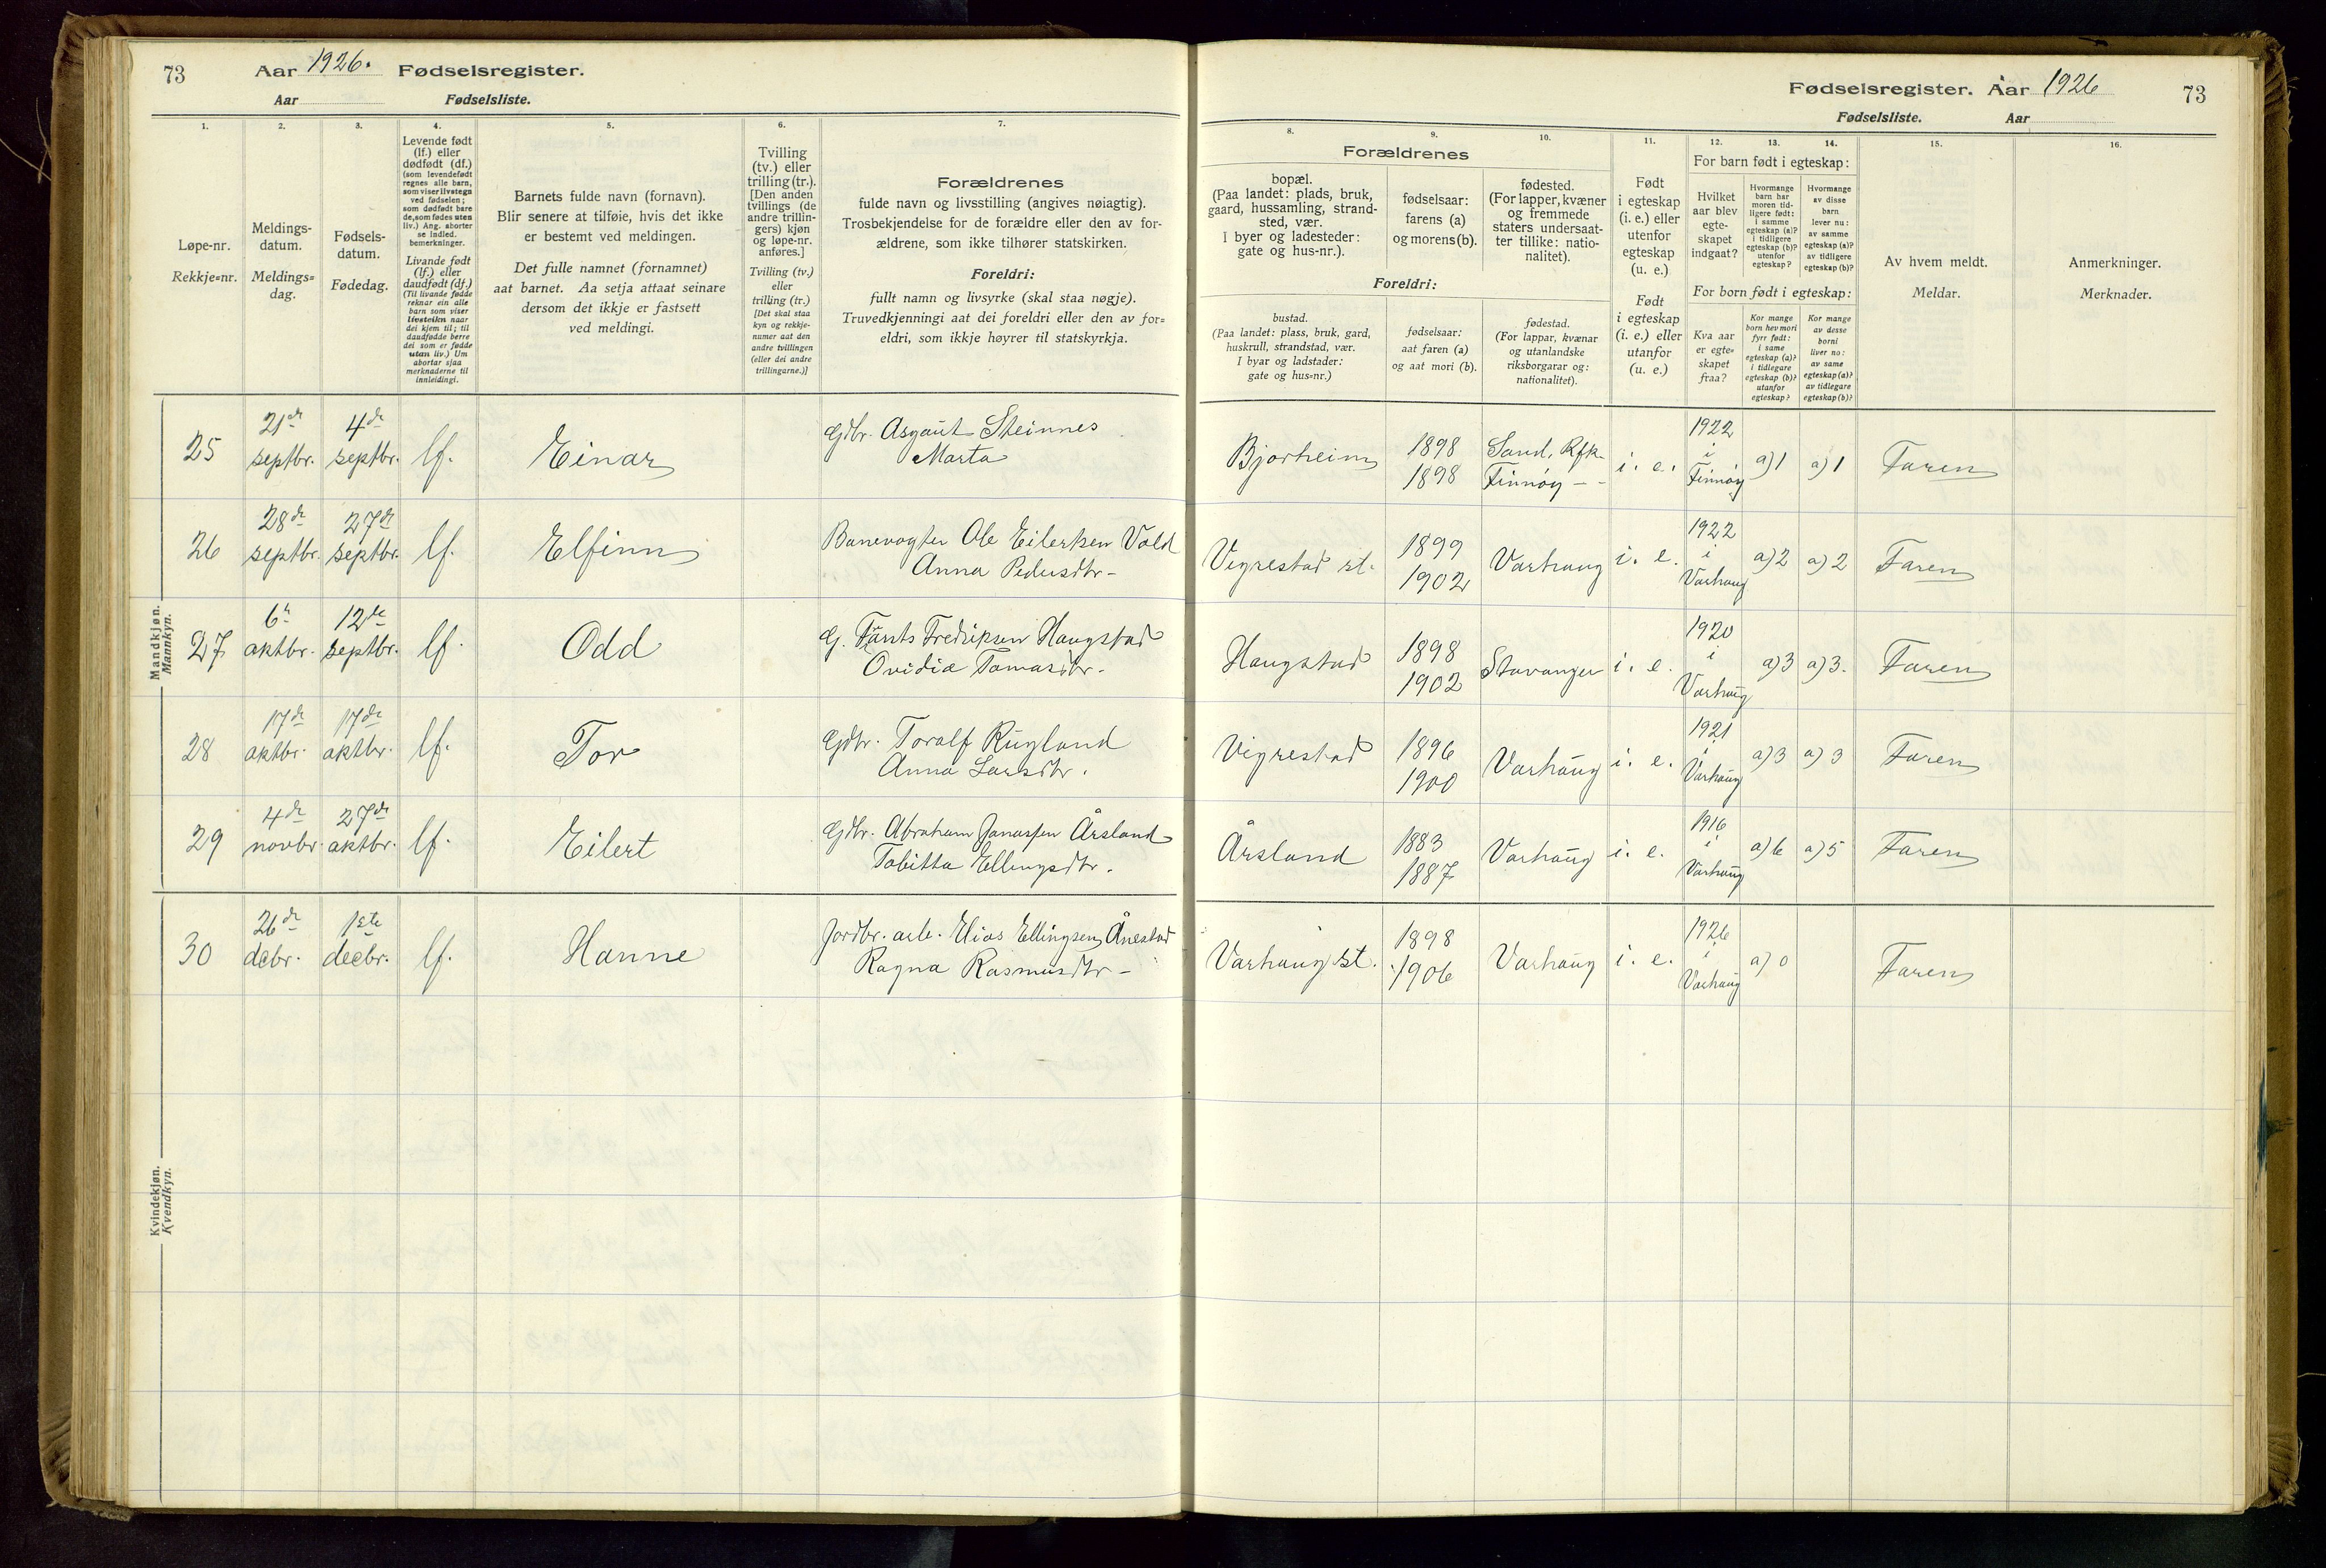 73 Aar 1926. Fødselsregister.
Aar Fødselsliste.
1. 2. 3. 4. 5. 6. 7.
Løpe-nr.
Rekkje=nr.
Meldings-
datum.
Meldings=
dag.
Fødsels-
datum.
Fødedag.
Levende født
(lf.) eller
dødfødt (df.)
(som levendefødt
regnes alle barn,
som viser livstegn
ved fødselen;
som dødfødt bare
de, som fødes uten
liv.) Ang. aborter
se indled.
bemerkninger.
Livande født
(lf.) eller
daudfødt (df.)
(Til livande fødde
reknar ein alle
barn som viser
livsteikn naar
dei kjem til; til
daudfødde berre
dei som er fødde
utan liv.) Um
abortar sjaa
merknaderne til
innleidingi.
Barnets fulde navn (fornavn).
Blir senere at tilføie, hvis det ikke
er bestemt ved meldingen.
Det fulle namnet (fornamnet)
aat barnet. Aa setja attaat seinare
dersom det ikkje er fastsett
ved meldingi.
Tvilling
(tv.) eller
trilling (tr.).
[Den anden
tvillings (de
andre trillin-
gers) kjøn
og løpe-nr.
anføres.]
Tvilling (tv.)
eller
trilling (tr.)
[Det skal staa
kyn og rekkje-
numer aat den
andre tvillingen
(eller dei andre
trillingarne.)]
Forældrenes
fulde navn og livsstilling (angives nøiagtig).
Trosbekjendelse for de forældre eller den av for-
ældrene, som ikke tilhører statskirken.
Foreldri:
fullt namn og livsyrke (skal staa nøgje).
Truvedkjenningi aat dei foreldri eller den av for=
eldri, som ikkje høyrer til statskyrkja.
Mandkjøn.
Mannkyn.
25 21de septbr. 4de septbr. lf. Einar
Gdbr. Asgaut Steinnes
Marta
26 28de septbr. 27de septbr. lf. Elfinn
Banevogter Ole Eilertsen Vold
Anna Pedersdtr-
27 6te oktbr. 12te septbr. lf. Odd
G. Fredriksen Haugstad
Ovidia Tomasdtr.
28 17de oktbr. 17de oktbr. lf. Tor
Gdbr. Toralf Rugland
Anna Larsdtr.
29 4de novbr. 27de oktbr. lf. Eilert
Gdbr. Abraham Jonassen Årsland
Tabitta Ellingsdtr.
Kvindekjøn.
Kvendkyn.
30 26de debr. 1ste decbr. lf. Hanne
Jordbr. arb. Elias Ellingsen Ånestad
Ragna Rasmusdtr-
Fødselsregister. Aar 1926 73
Fødselsliste. Aar
8. 9. 10. 11. 12. 13. 14. 15. 16.
Forældrenes
bopæl.
(Paa landet: plads, bruk,
gaard, hussamling, strand-
sted, vær.
I byer og ladesteder:
gate og hus-nr.).
fødselsaar:
farens (a)
og morens (b).
fødested.
(For lapper, kvæner
og fremmede
staters undersaat-
ter tillike: natio-
nalitet).
Foreldri:
bustad.
(Paa landet: plass, bruk, gard,
huskrull, strandstad, vær.
I byar og ladstader:
gate og hus=nr.)
fødselsaar:
aat faren (a)
og aat mori (b).
fødestad.
(For lappar, kvænar
og utanlandske
riksborgarar og:
nationalitet).
Født
i egteskap
(i. e.) eller
utenfor
egteskap
(u. e.)
Født
i egteskap
(i. e.) eller
utanfor
(u. e.)
For barn født i egteskap:
Hvilket
aar blev
egte-
skapet
indgaat?
Hvormange
barn har
moren tid-
ligere født:
i samme
egteskap (a)?
i tidligere
egteskap (b)?
utenfor
egteskap?
Hvormange
av disse
barn
lever nu:
av samme
egteskap (a)?
av tidligere
egteskap (b)?
For born født i egteskap:
Kva aar
er egte=
skapet
fraa?
Kor mange
born hev mori
fyrr født:
i same
egteskap (a)?
i tidlegare
egteskap (b)?
utanfor
egteskap?
Kor mange
av desse
borni
liver no:
av same
egteskap (a)?
av tidlegare
egteskap (b)?
Av hvem meldt.
Meldar.
Anmerkninger.
Merknader.
Bjorheim 1898 1898 Sand, Rfk. Finnøy - - i. e. 1922 i Finnøy a) 1 a) 1 Faren
Vigrestad st. 1899 1902 Varhaug i. e. 1922 i Varhaug a) 2 a) 2 Faren
Haugstad 1898 1902 Stavanger i. e. 1920 i Varhaug a) 3 a) 3. Faren
Vigrestad 1896 1900 Varhaug i. e. 1921 i Varhaug a) 3 a) 3 Faren
Årsland 1883 1887 Varhaug i. e. 1916 i Varhaug a) 6 a) 5 Faren
Varhaug st. 1898 1906 Varhaug i. e. 1926 i Varhaug a) 0 Faren